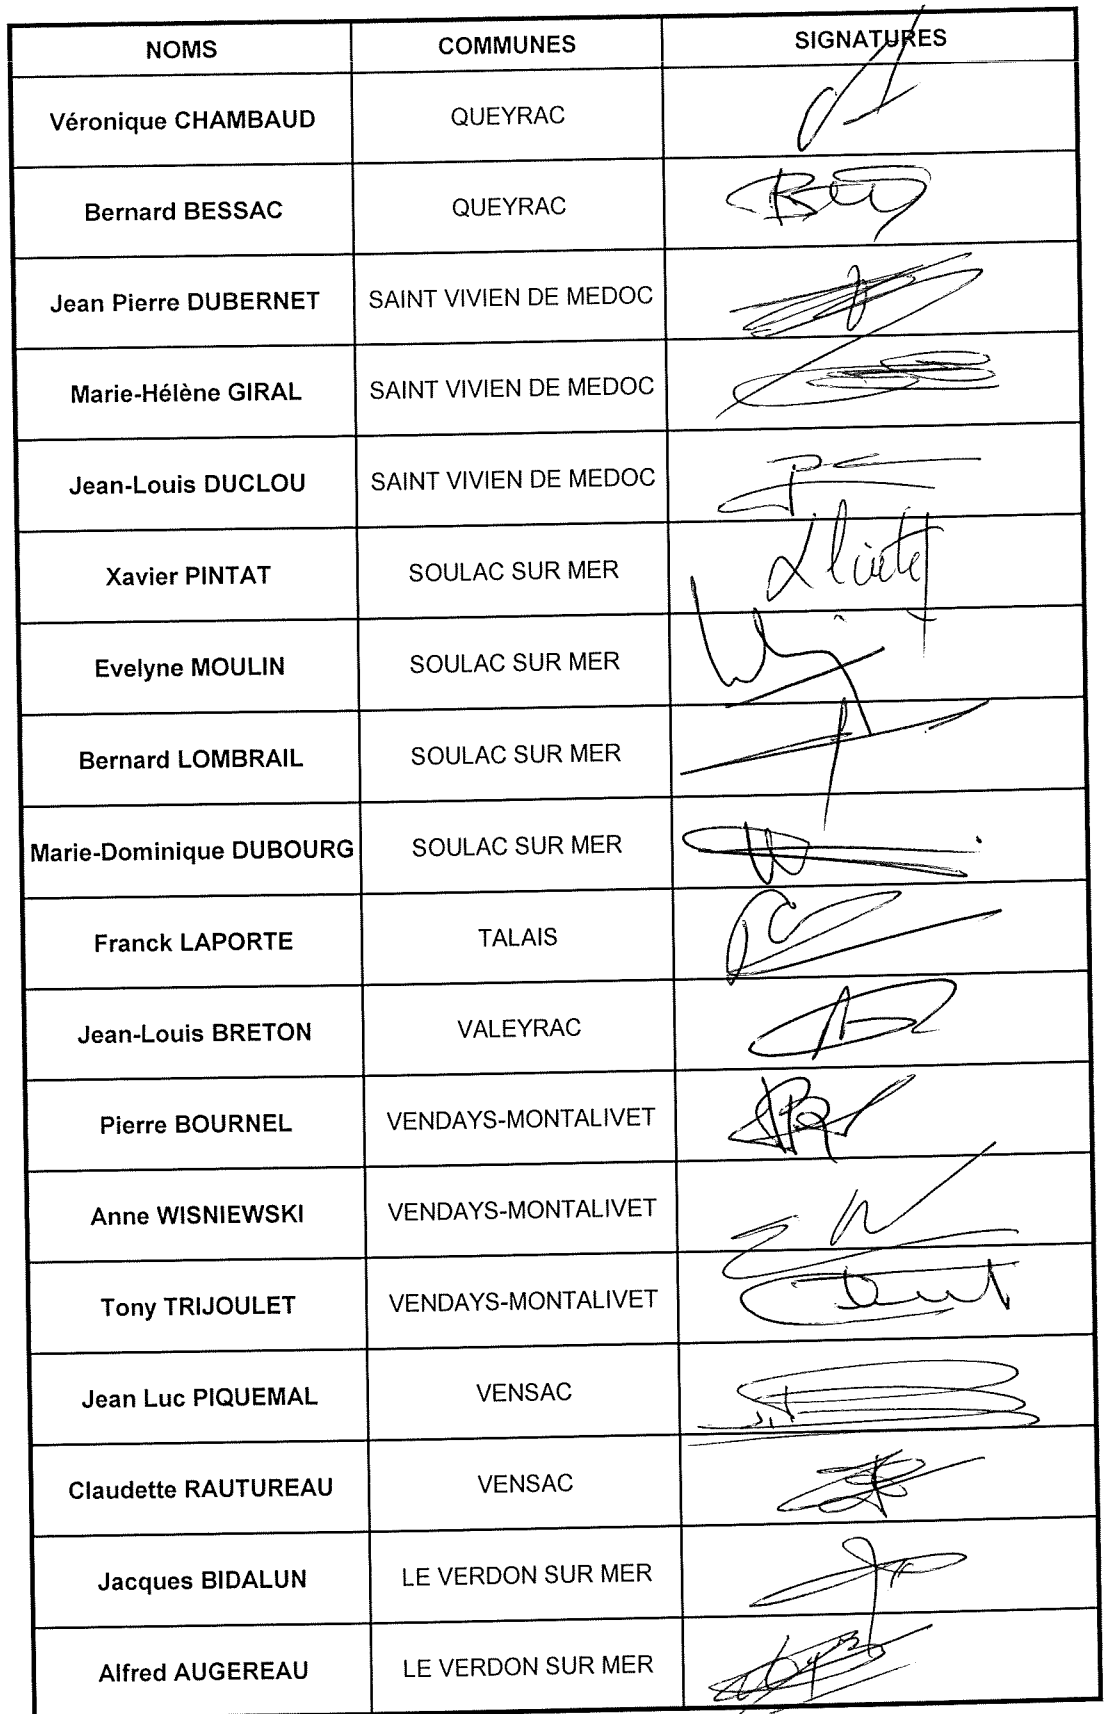 NOMS COMMUNES SIGNATURES
Véronique CHAMBAUD QUEYRAC
Bernard BESSAC QUEYRAC
Jean Pierre DUBERNET SAINT VIVIEN DE MEDOC
Marie-Hélène GIRAL SAINT VIVIEN DE MEDOC
Jean-Louis DUCLOU SAINT VIVIEN DE MEDOC
Xavier PINTAT SOULAC SUR MER
Evelyne MOULIN SOULAC SUR MER
Bernard LOMBRAIL SOULAC SUR MER
Marie-Dominique DUBOURG SOULAC SUR MER
Franck LAPORTE TALAIS
Jean-Louis BRETON VALEYRAC
Pierre BOURNEL VENDAYS-MONTALIVET
Anne WISNIEWSKI VENDAYS-MONTALIVET
Tony TRIJOULET VENDAYS-MONTALIVET
Jean Luc PIQUEMAL VENSAC
Claudette RAUTUREAU VENSAC
Jacques BIDALUN LE VERDON SUR MER
Alfred AUGEREAU LE VERDON SUR MER